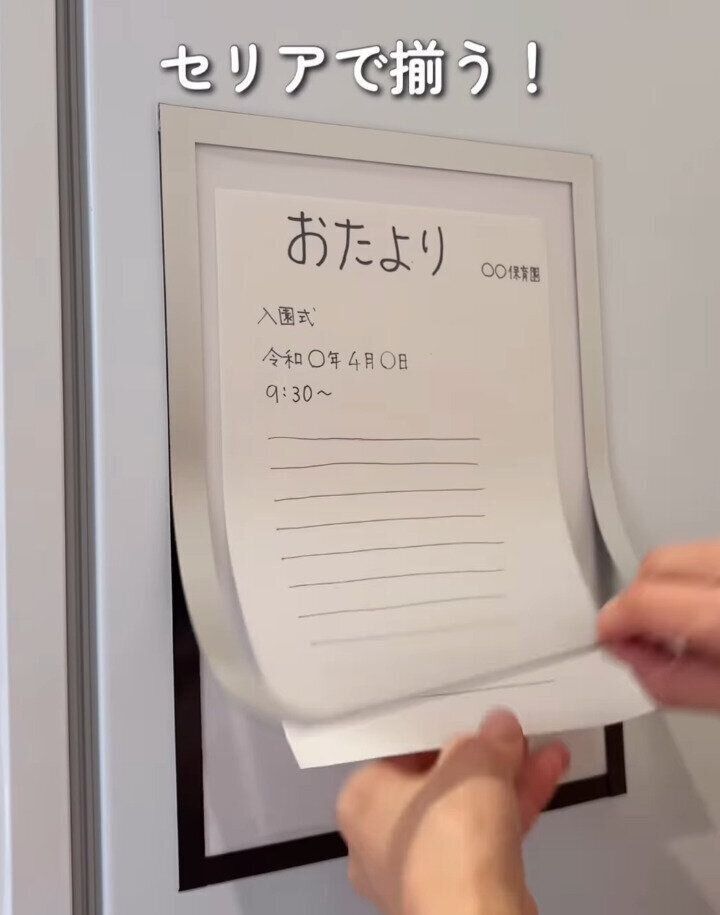 セリアで揃う！
おたより
○○保育園
入園式
令和○年4月○日
9:30〜